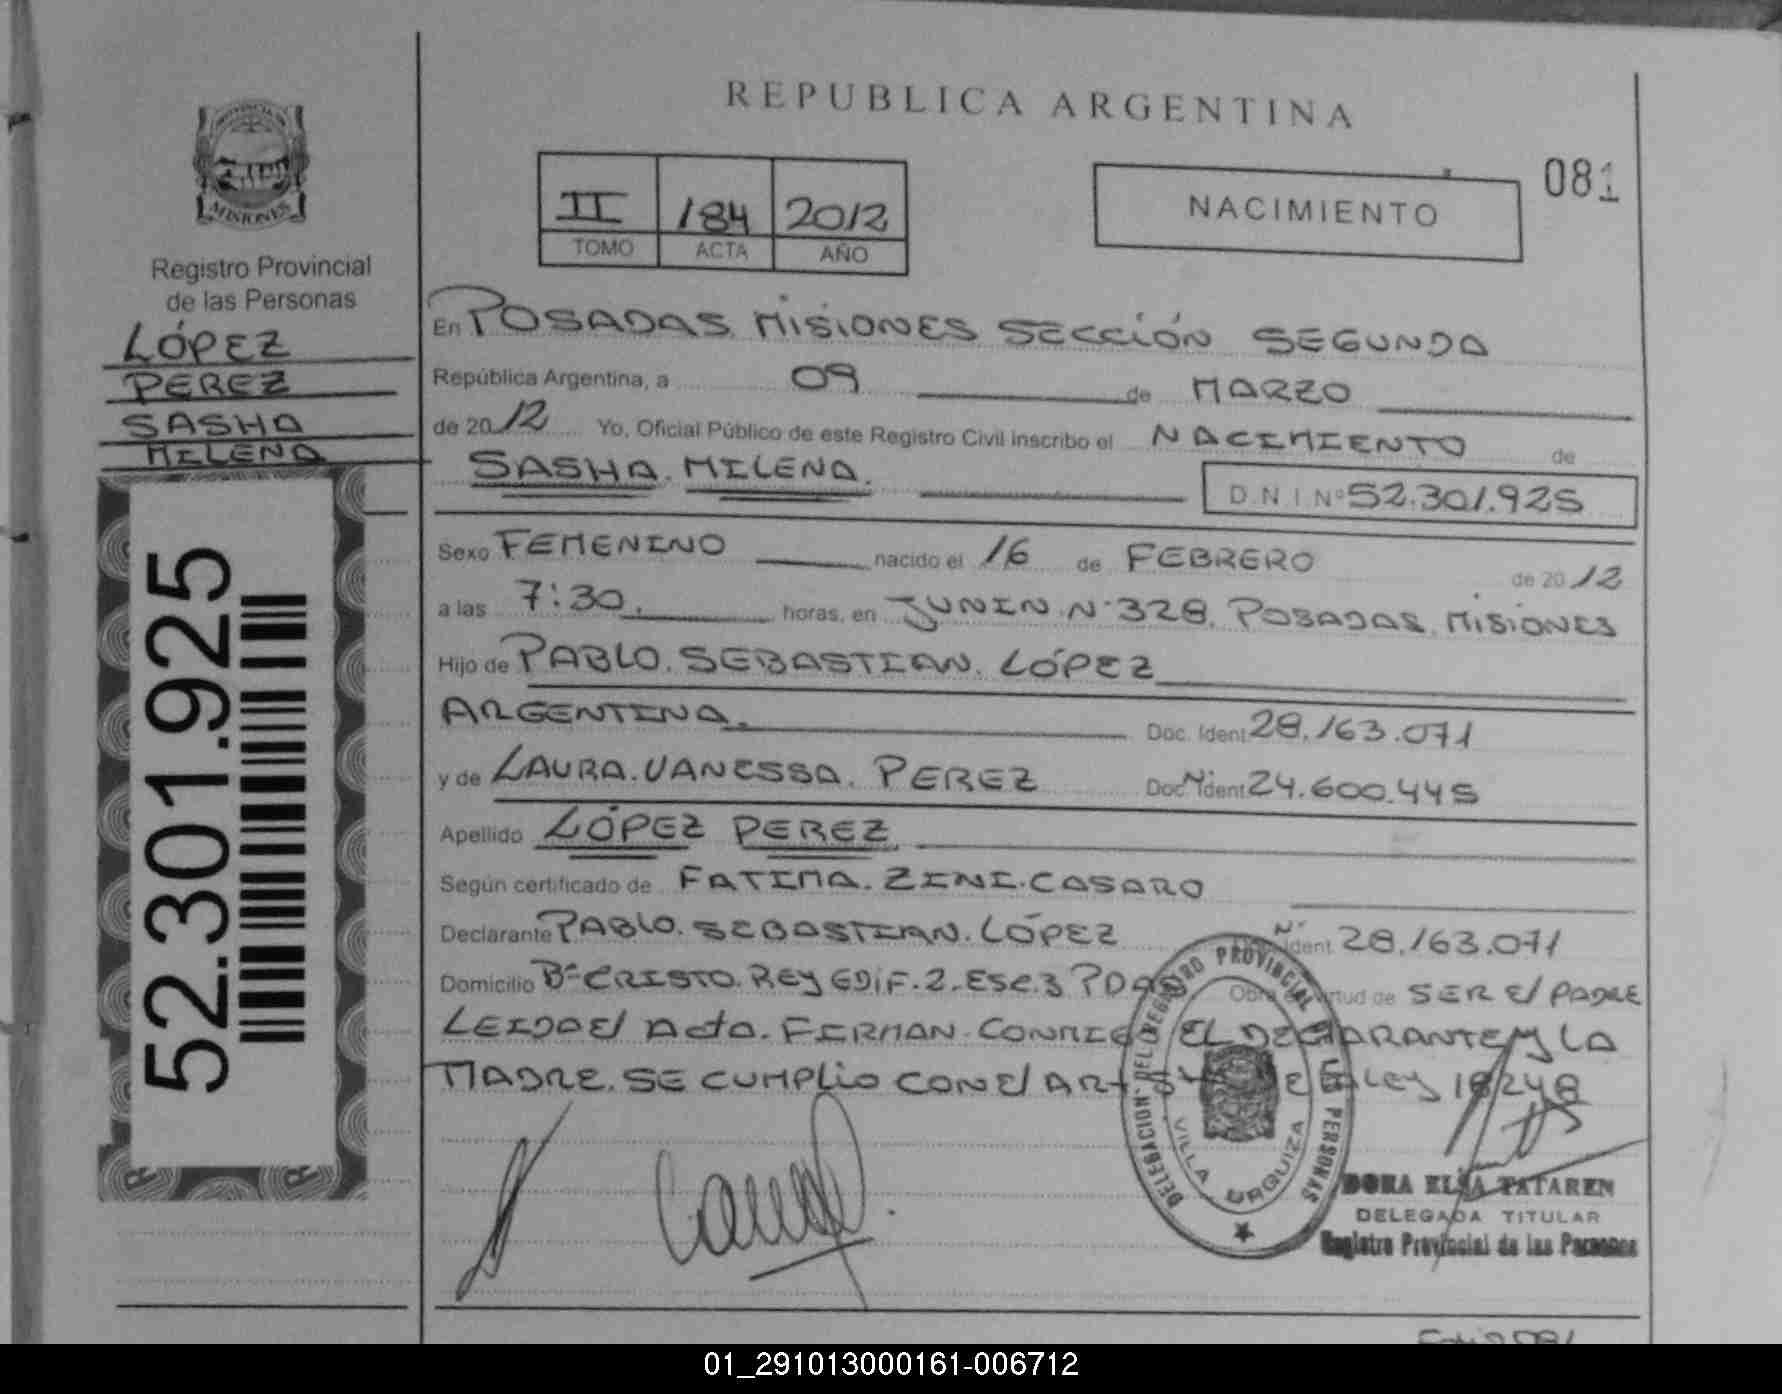 REPUBLICA ARGENTINA
081
PROVINCIA DE
MISIONES
Registro Provincial
de las Personas
LÓPEZ
PEREZ
SASHA
MILENA
52.301.925
II 184 2012
TOMO ACTA AÑO
NACIMIENTO
En POSADAS MISIONES SECCIÓN SEGUNDA
República Argentina, a 09 de MARZO
de 2012 Yo, Oficial Público de este Registro Civil inscribo el NACIMIENTO de
SASHA. MILENA. D.N.I. Nº 52.301.925
Sexo FEMENINO nacido el 16 de FEBRERO de 2012
a las 7:30. horas, en JUNIN Nº 328. POSADAS. MISIONES
Hijo de PABLO. SEBASTIAN. LÓPEZ
ARGENTINA. Doc. Ident 28.163.071
y de LAURA. VANESSA. PEREZ Doc Nº Ident 24.600.445
Apellido LÓPEZ PEREZ
Según certificado de FATIMA. ZINI. CASARO
Declarante PABLO. SEBASTIAN. LÓPEZ Nº Ident 28.163.071
Domicilio Bº CRISTO. REY EDIF. 2. ESC. 3 PDAS Obra en virtud de SER El PADRE
LEIDA El Acta. FIRMAN. CONMIGO EL DECLARANTE y LA
MADRE. SE CUMPLIO CON El ART. LEY 18248
DELEGACION DEL REGISTRO PROVINCIAL DE LAS PERSONAS
VILLA URQUIZA
DORA ELSA TATAREN
DELEGADA TITULAR
Registro Provincial de las Personas
01_291013000161-006712